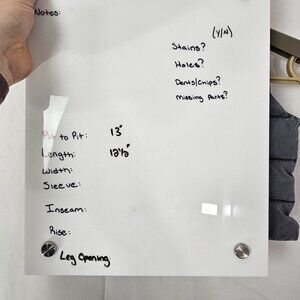 Notes:
(Y/N)
Stains?
Holes?
Dents/Chips?
Missing Parts?
Pit to Pit: 13"
Length: 12 1/2"
Width:
Sleeve:
Inseam:
Rise:
Leg Opening